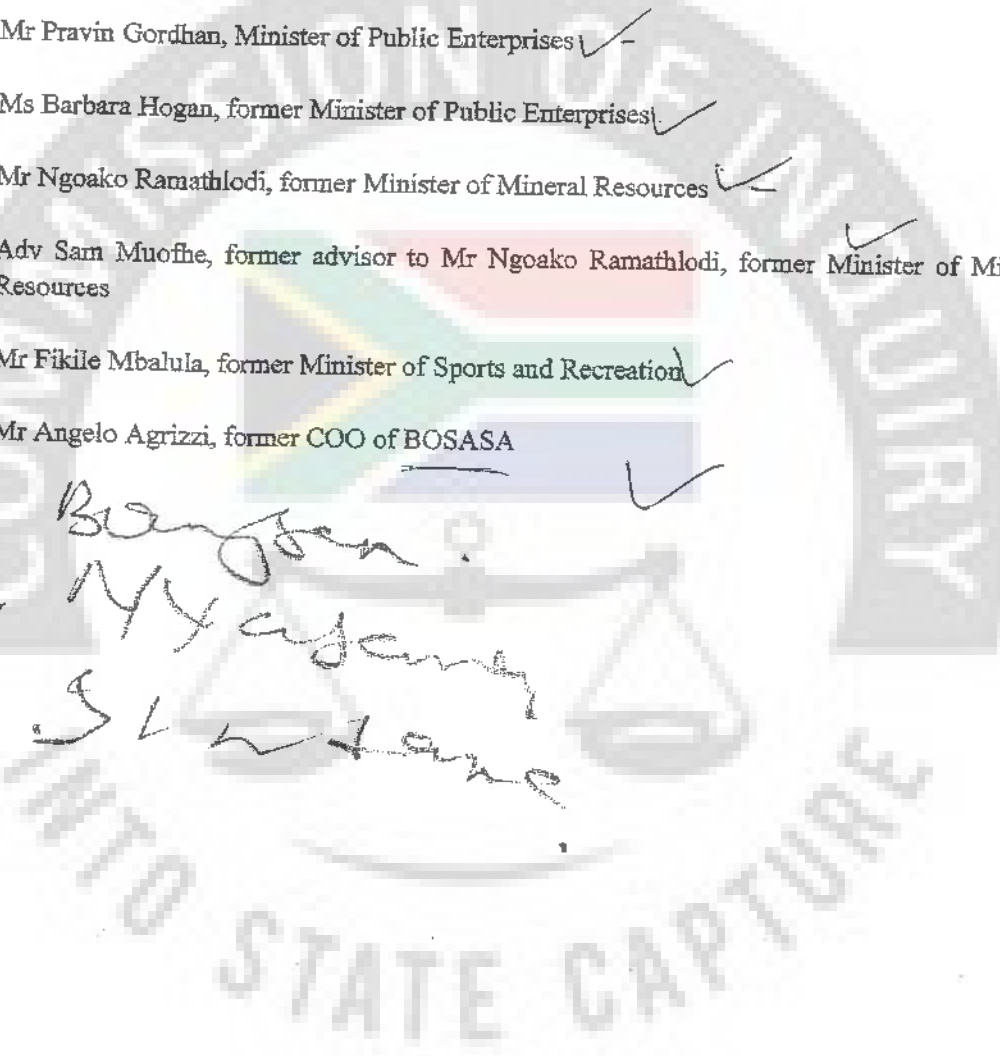 Mr Pravin Gordhan, Minister of Public Enterprises
Ms Barbara Hogan, former Minister of Public Enterprises
Mr Ngoako Ramathlodi, former Minister of Mineral Resources
Adv Sam Muofhe, former advisor to Mr Ngoako Ramathlodi, former Minister of Mi
Resources
Mr Fikile Mbalula, former Minister of Sports and Recreation
Mr Angelo Agrizzi, former COO of BOSASA
COMMISSION OF INQUIRY
INTO STATE CAPTURE